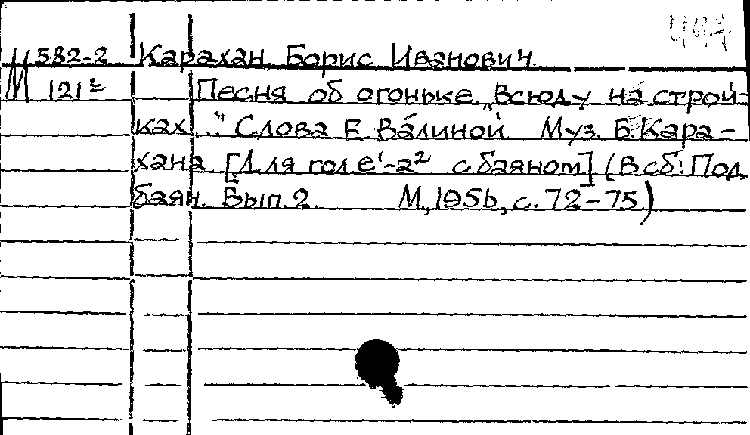 М 582-2 Карахан Борис Иванович
121² Песня об огоньке „Всюду на строй-
ках..." Слова Е. Валиной Муз. Б. Кара-
хана [Для гол e'-a² с баяном] (В сб: Под
баян. Вып. 2. М., 1956, с. 72-75)